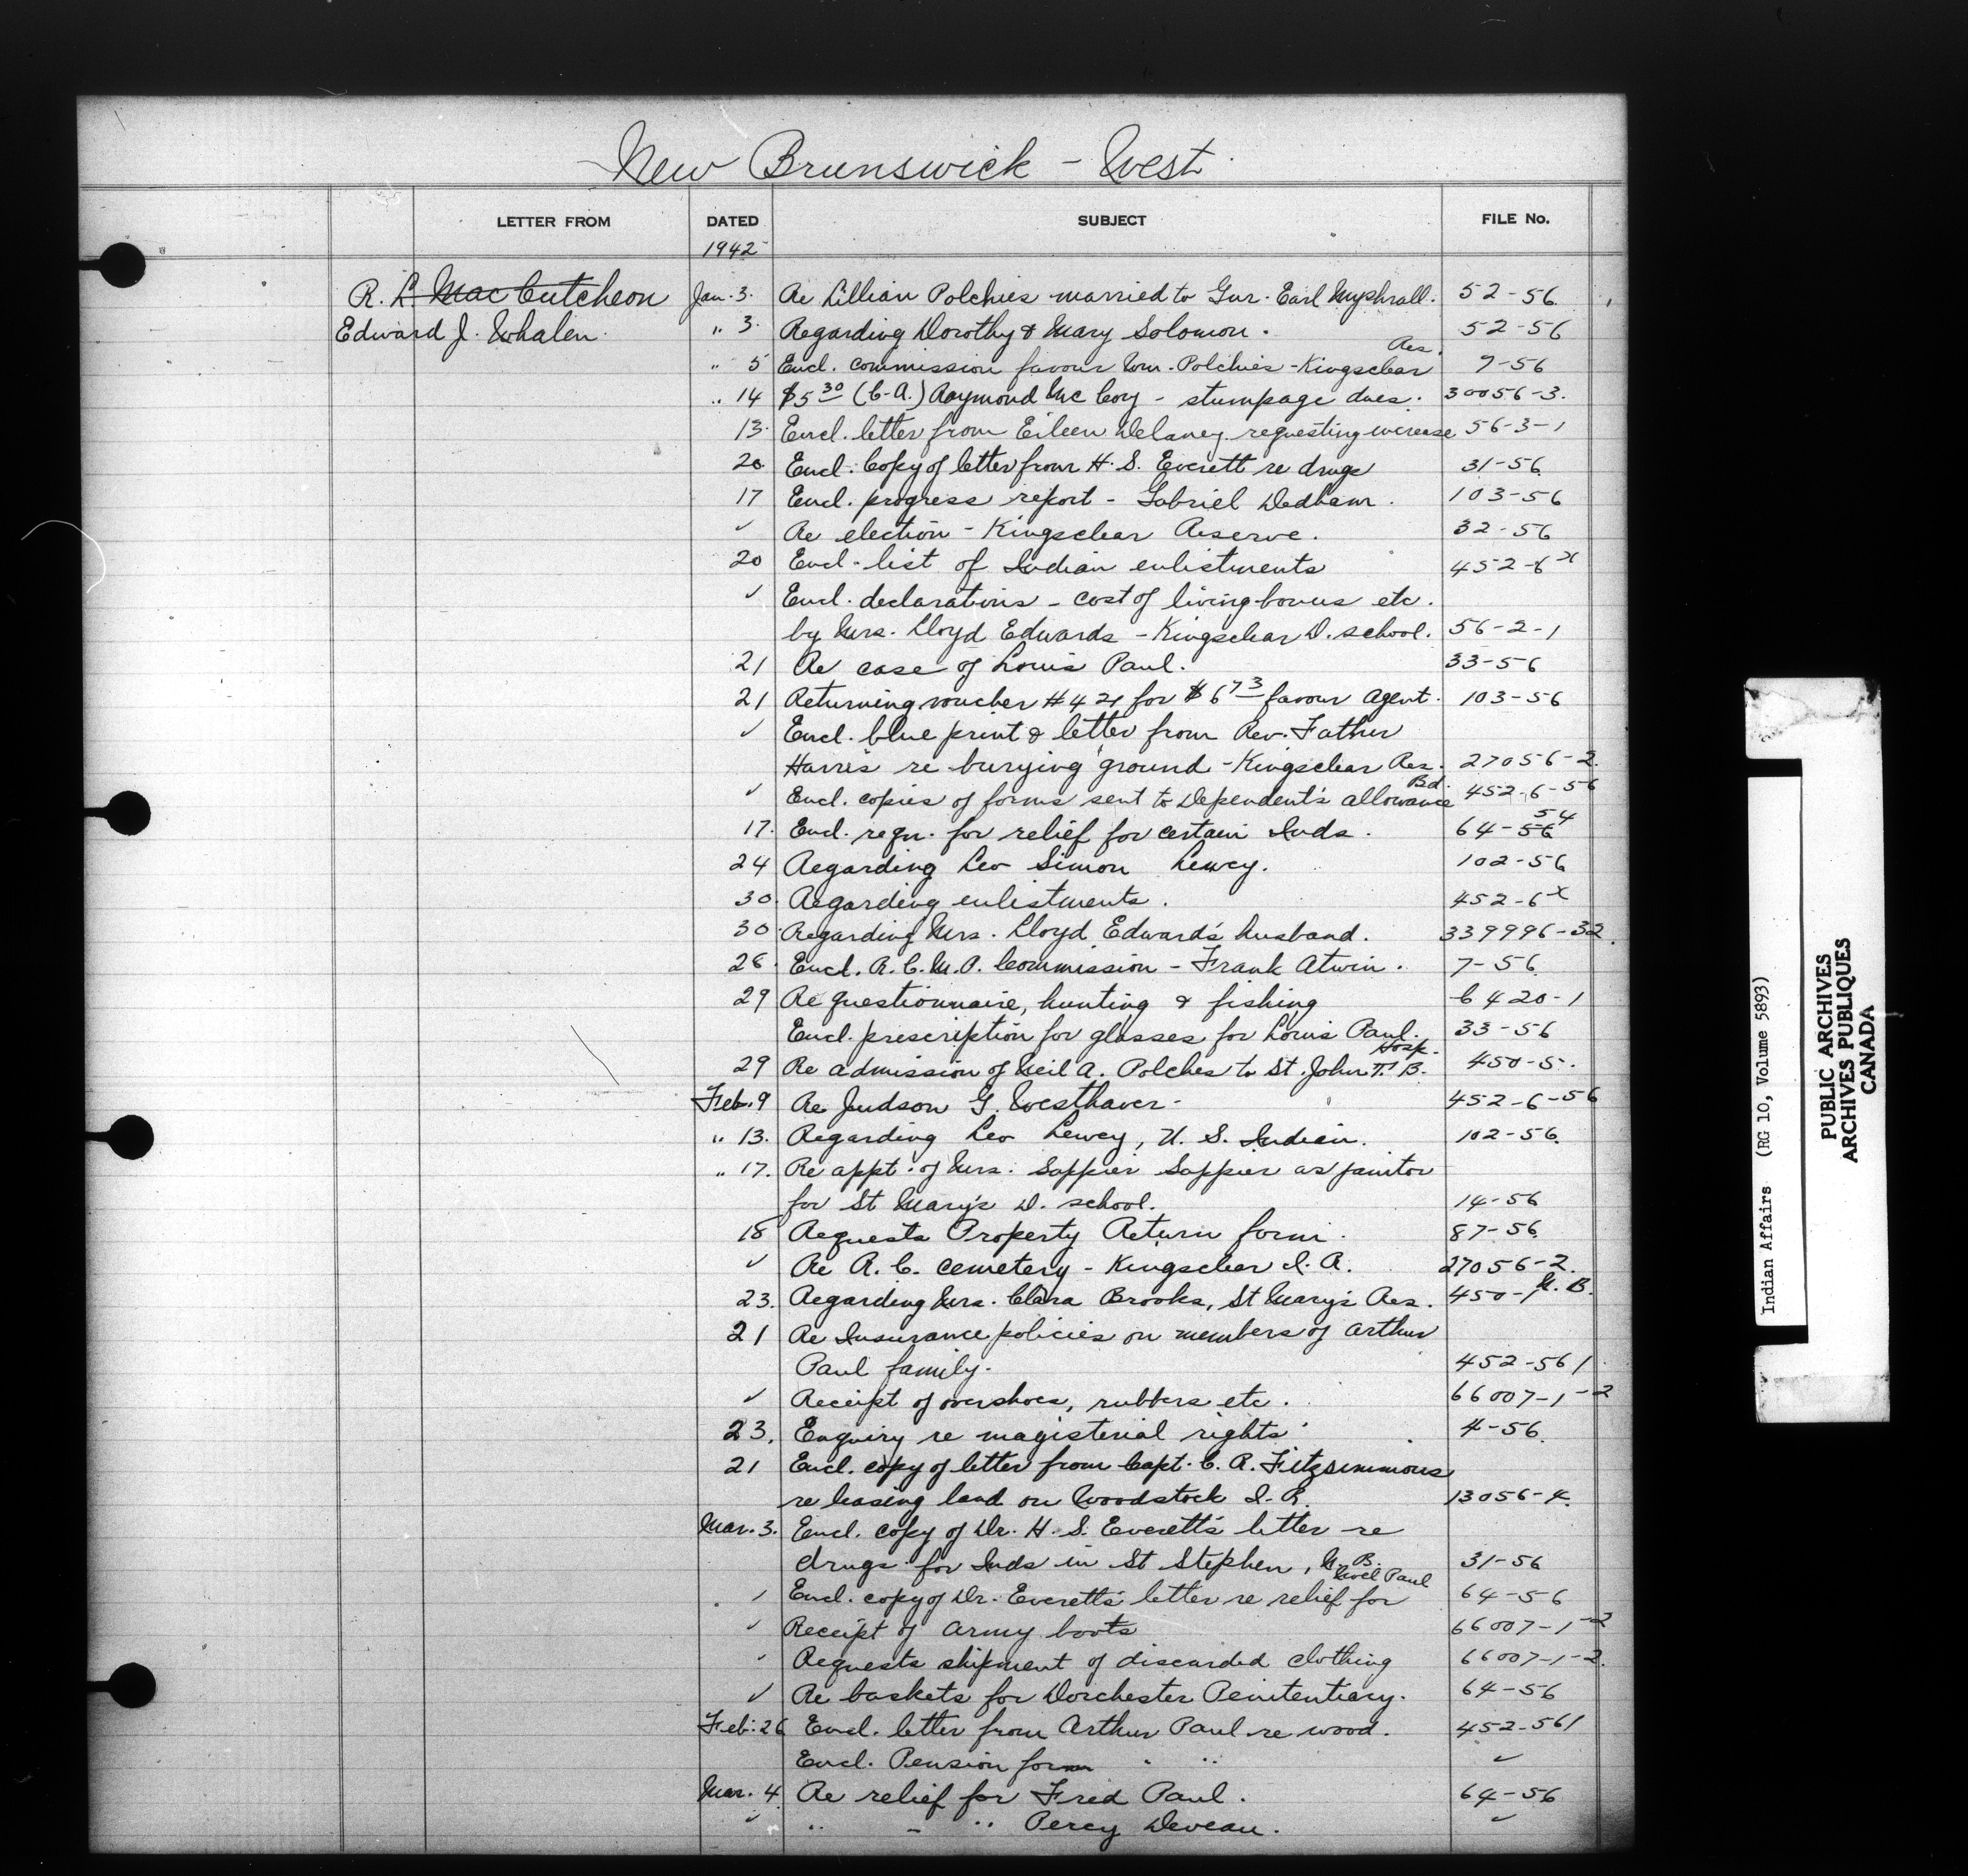 New Brunswick - West
LETTER FROM DATED SUBJECT FILE No.
1942
R. L. MacCutcheon Jan. 3. Re Lillian Polchies married to Gnr. Earl Myshrall. 52-56
Edward J. Whalen. " 3. Regarding Dorothy & Mary Solomon. 52-56
" 5 Encl. commission favour Wm. Polchies - Kingsclear Res. 7-56
" 14 $5.30 (C.A.) Raymond McCoy - stumpage dues. 30056-3.
13. Encl. letter from Eileen Delaney requesting increase 56-3-1
20. Encl. Copy of letter from H. S. Everett re drugs 31-56
17 Encl. progress report - Gabriel Dedham. 103-56
✓ Re election - Kingsclear Reserve. 32-56
20 Encl. list of Indian enlistments 452-6 x
✓ Encl. declarations - cost of living bonus etc.
by Mrs. Lloyd Edwards - Kingsclear D. school. 56-2-1
21 Re case of Louis Paul. 33-56
21 Returning voucher #421 for $6.73 favour Agent. 103-56
✓ Encl. blue print & letter from Rev. Father
Harris re burying ground - Kingsclear Res. 27056-2.
✓ Encl. copies of forms sent to Dependent's Allowance Bd. 452-6-56
17. Encl. reqn. for relief for certain Inds. 64-56 54
24 Regarding Leo Simon Lewey. 102-56
30. Regarding enlistments. 452-6 x
30. Regarding Mrs. Lloyd Edwards' husband. 339996-32.
28. Encl. R.C.M.P. Commission - Frank Atwin. 7-56
29 Re questionnaire, hunting & fishing 6420-1
Encl. prescription for glasses for Louis Paul. 33-56
29 Re admission of Neil A. Polches to St. John T.B. Hosp. 450-5.
Feb. 9 Re Judson G. Westhaver. 452-6-56
" 13. Regarding Leo Lewey, U.S. Indian. 102-56.
" 17. Re appt. of Mrs. Sappier Sappier as janitor
for St Mary's D. school. 14-56
18 Requests Property Return form. 87-56
✓ Re R.C. cemetery - Kingsclear I.R. 27056-2.
23. Regarding Mrs. Clara Brooks, St Mary's Res. 450-1 N.B.
21 Re Insurance policies on members of Arthur
Paul family. 452-561
✓ Receipt of overshoes, rubbers etc. 66007-1-2
23. Enquiry re magisterial rights 4-56
21 Encl. copy of letter from Capt. C. R. Fitzsimmons
re leasing land on Woodstock I.R. 13056-4.
Mar. 3. Encl. copy of Dr. H. S. Everett's letter re
drugs for Inds in St Stephen, N.B. 31-56
✓ Encl. copy of Dr. Everett's letter re relief for Noel Paul 64-56
✓ Receipt of army boots 66007-1-2
✓ Requests shipment of discarded clothing 66007-1-2.
✓ Re baskets for Dorchester Penitentiary. 64-56
Feb. 26 Encl. letter from Arthur Paul re wood. 452-561
Encl. Pension form " " ✓
Mar. 4 Re relief for Fred Paul. 64-56
✓ " - " Percy Deveau. ✓
Indian Affairs (RG 10, Volume 5893)
PUBLIC ARCHIVES
ARCHIVES PUBLIQUES
CANADA